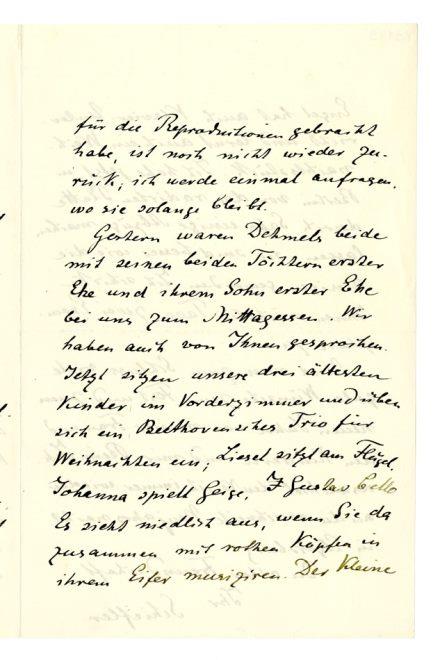 für die Reproduktionen gebracht
habe, ist noch nicht wieder zu-
rück; ich werde einmal anfragen,
wo sie solange bleibt.
Gestern waren Dehmels beide
mit seinen beiden Töchtern erster
Ehe und ihrem Sohn erster Ehe
bei uns zum Mittagessen. Wir
haben auch von Ihnen gesprochen.
Jetzt sitzen unsere drei ältesten
Kinder im Vorderzimmer und üben
sich ein Beethovensches Trio für
Weihnachten ein; Liesel sitzt am Flügel,
Johanna spielt Geige, Gustav Cello
Es sieht niedlich aus, wenn Sie da
zusammen mit rothen Köpfen in
ihrem Eifer musiziren. Der Kleine